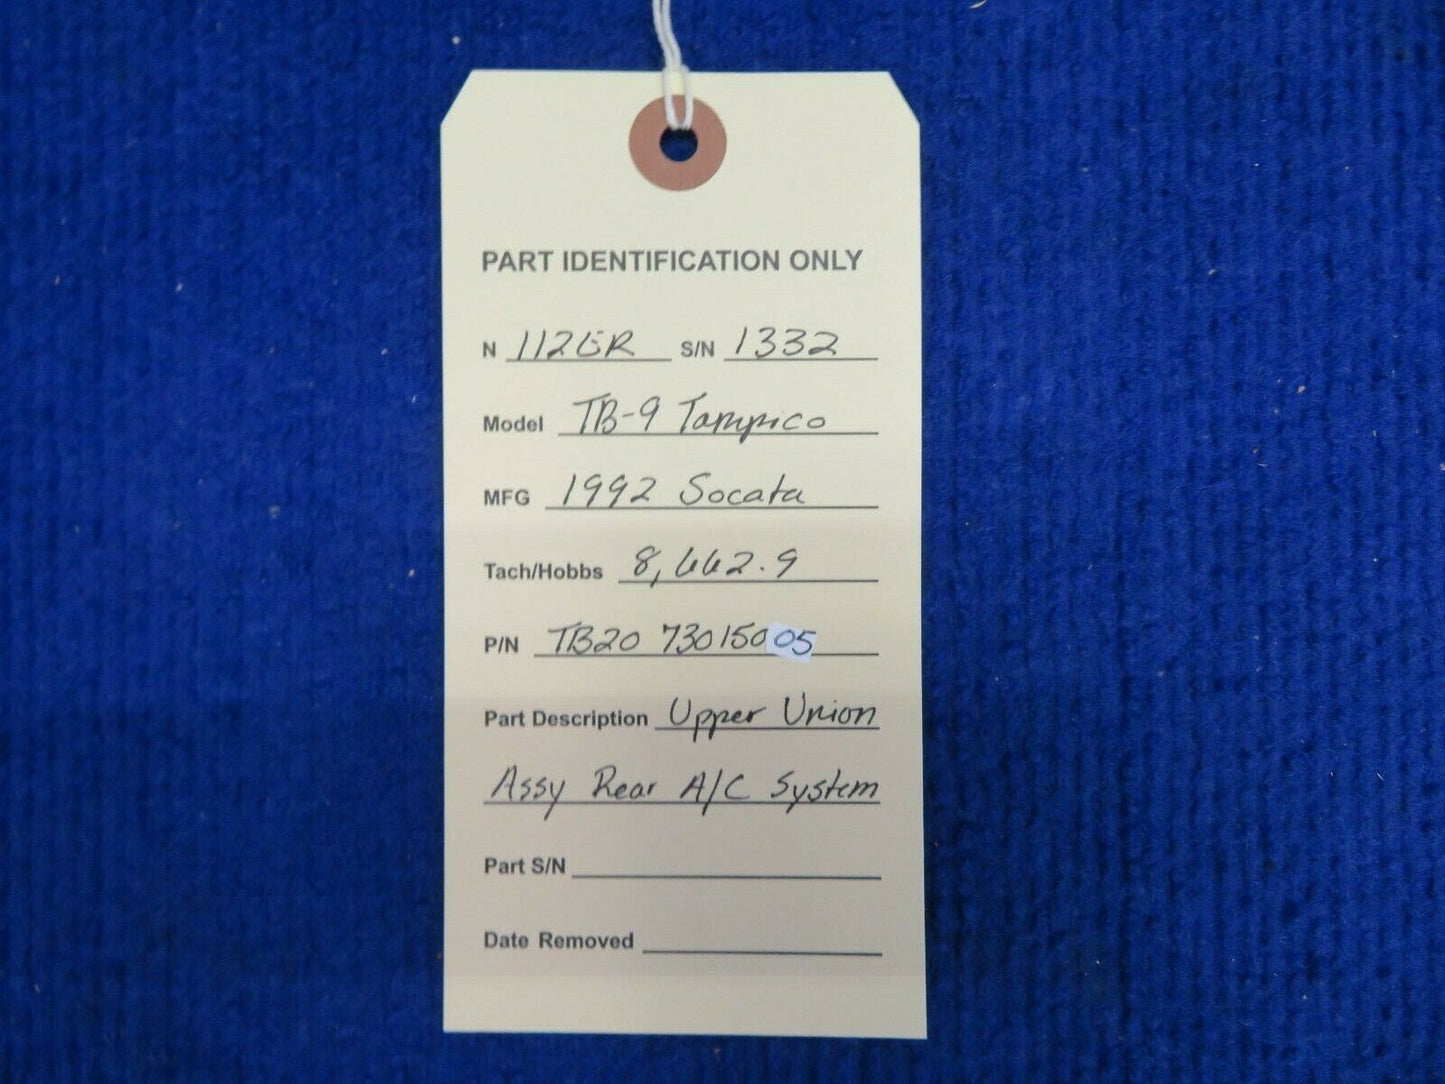 PART IDENTIFICATION ONLY
N 112ER S/N 1332
Model TB-9 Tampico
MFG 1992 Socata
Tach/Hobbs 8,662.9
P/N TB20 7301500 05
Part Description Upper Union
Assy Rear A/C System
Part S/N
Date Removed